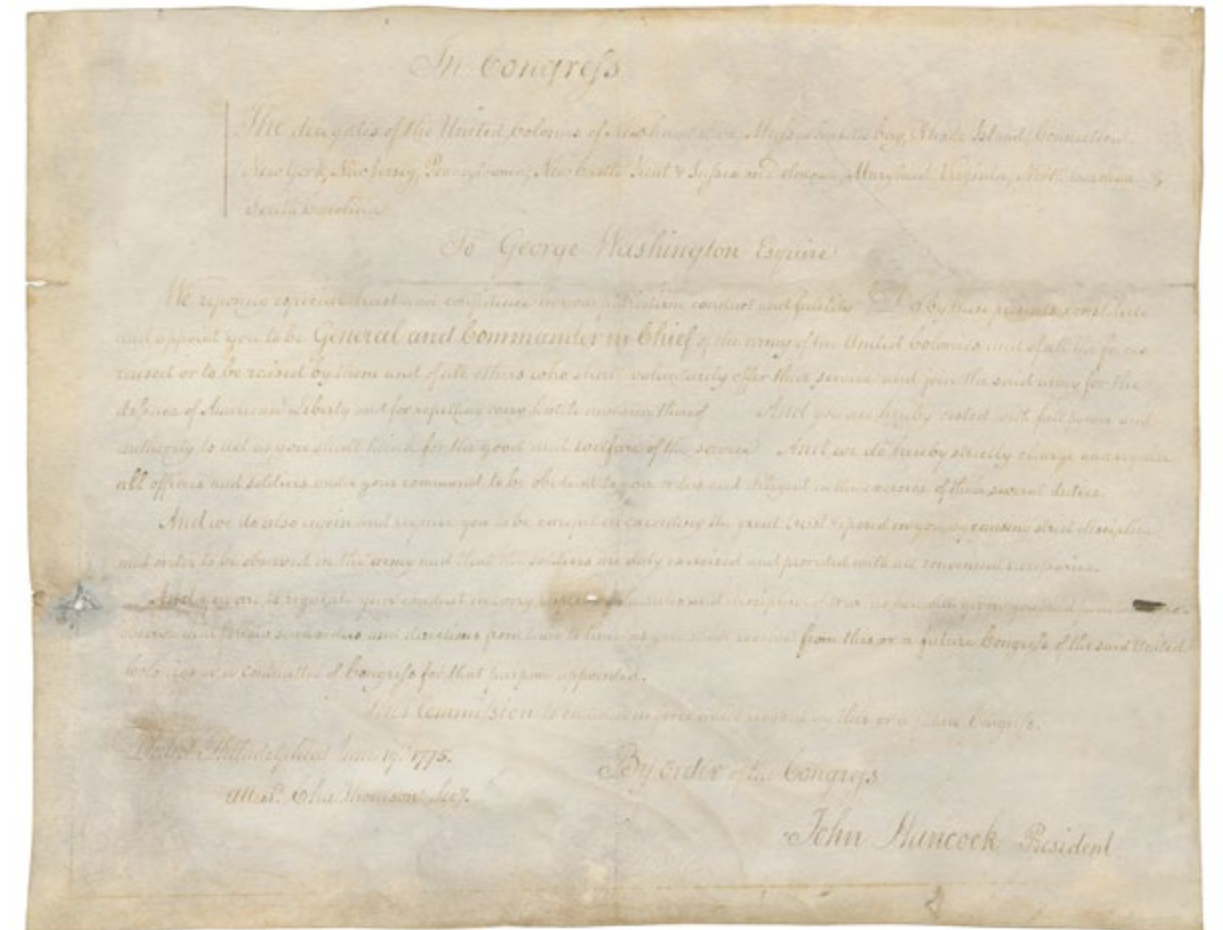 In Congress
The delegates of the United Colonies of New hampshire, Massachusetts bay, Rhode Island, Connecticut,
New York, New Jersey, Pennsylvania, New Castle Kent & Sussex on Delaware, Maryland, Virginia, North Carolina &
South Carolina
To George Washington Esquire
We reposing especial trust and confidence in your patriotism conduct and fidelity Do by these presents constitute
and appoint you to be General and Commander in Chief of the army of the United Colonies and of all the forces
raised or to be raised by them and of all others who shall voluntarily offer their service and join the said army for the
defence of American Liberty and for repelling every hostile invasion thereof And you are hereby vested with full power and
authority to act as you shall think for the good and welfare of the service And we do hereby strictly charge and require
all officers and soldiers under your command to be obedient to your orders and diligent in the exercise of their several duties
And we do also enjoin and require you to be careful in executing the great trust reposed in you, by causing strict discipline
and order to be observed in the army and that the soldiers are duly exercised and provided with all convenient necessaries.
And you are to regulate your conduct in every respect by the rules and discipline of war as herewith given you and
observe and follow such orders and directions from time to time as you shall receive from this or a future Congress of the said United
Colonies or a committee of Congress for that purpose appointed.
This Commission to continue in force until revoked by this or a future Congress.
Dated Philadelphia June 19th 1775.
Attest Cha Thomson Secy.
By order of the Congress
John Hancock President